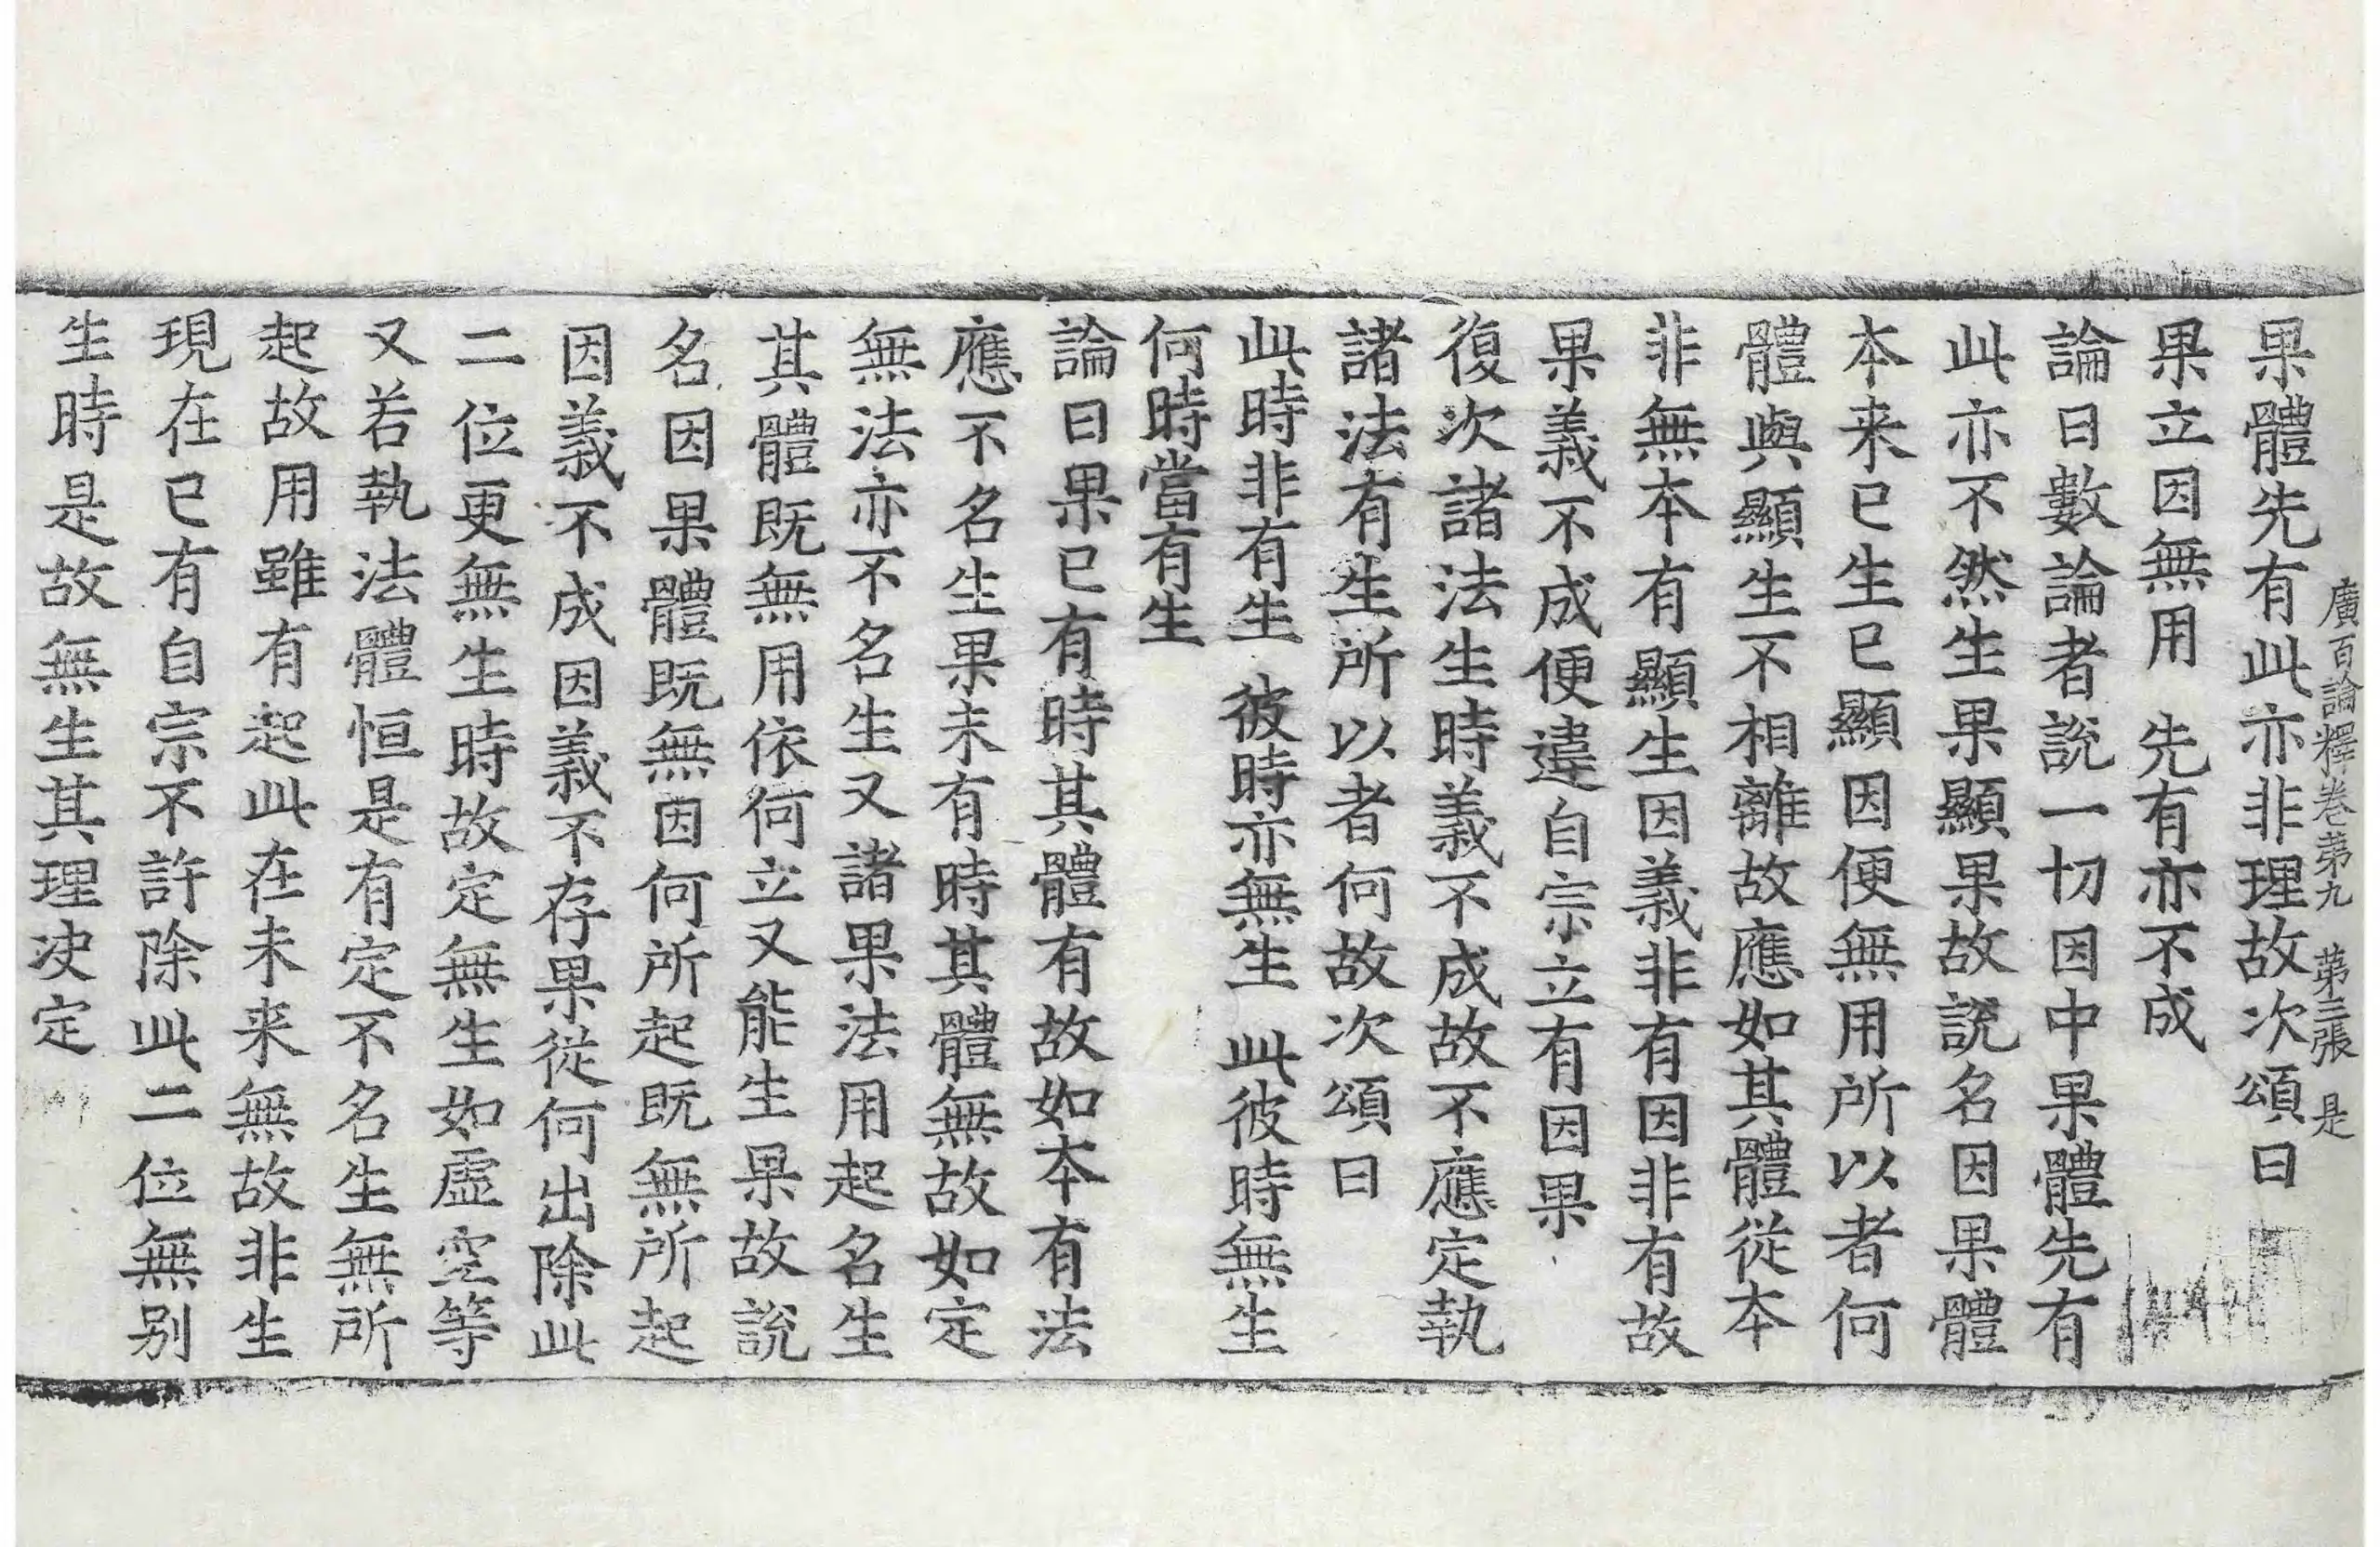 廣百論釋卷第九　第三張　是
果體先有此亦非理故次頌曰
果立因無用　先有亦不成
論曰數論者說一切因中果體先有
此亦不然生果顯果故說名因果體
本来已生已顯因便無用所以者何
體與顯生不相離故應如其體從本
非無本有顯生因義非有因非有故
果義不成便違自宗立有因果
復次諸法生時義不成故不應定執
諸法有生所以者何故次頌曰
此時非有生　彼時亦無生　此彼時無生
何時當有生
論曰果已有時其體有故如本有法
應不名生果未有時其體無故如定
無法亦不名生又諸果法用起名生
其體既無用依何立又能生果故說
名因果體既無因何所起既無所起
因義不成因義不存果從何出除此
二位更無生時故定無生如虛空等
又若執法體恒是有定不名生無所
起故用雖有起此在未来無故非生
現在已有自宗不許除此二位無别
生時是故無生其理决定